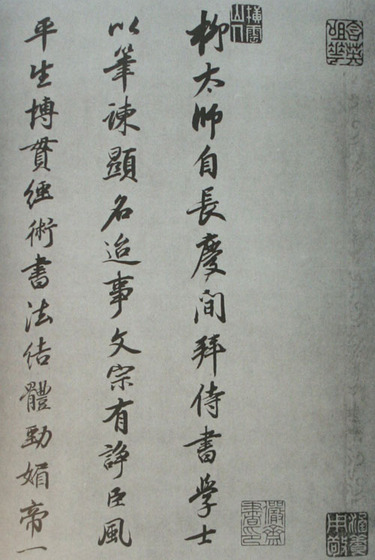 含英咀華
橫雲山人
柳太師自長慶間拜侍書學士
以筆諫顯名迨事文宗有諍臣風
平生博貫經術書法結體勁媚帝一